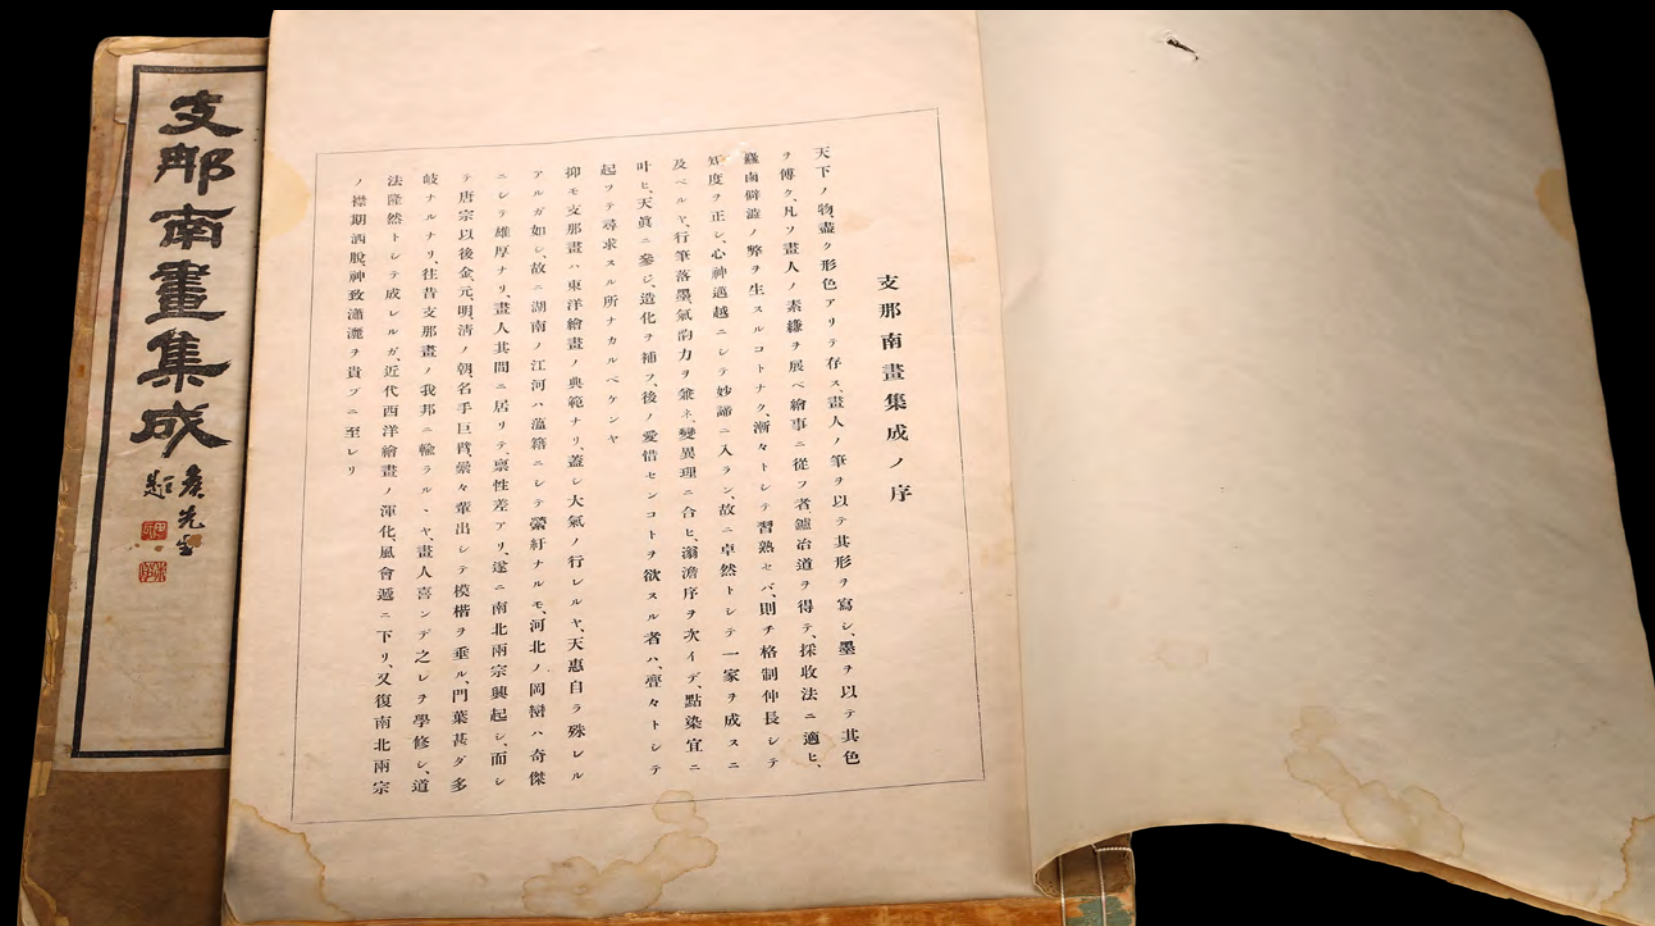 支那南畫集成
題
支那南畫集成ノ序
天下ノ物、盡ク形色アリテ存ス、畫人ノ筆ヲ以テ其形ヲ寫シ、墨ヲ以テ其色
ヲ傅ク、凡ソ畫人ノ素縑ヲ展ベ繪事ニ從フ者、鑪冶道ヲ得テ、採收法ニ適ヒ、
麤鹵僻澁ノ弊ヲ生スルコトナク、漸々トシテ習熟セバ、則チ格制伸長シテ
矩度ヲ正シ、心神邁越ニシテ妙諦ニ入ラン、故ニ卓然トシテ一家ヲ成スニ
及ベルヤ、行筆落墨、氣韵力ヲ兼ネ、變異理ニ合ヒ、滃澹序ヲ次イデ、點染宜ニ
叶ヒ、天眞ニ參シ、造化ヲ補フ、後ノ愛惜センコトヲ欲スル者ハ、亹々トシテ
起ツテ尋求スル所ナカルベケンヤ
抑モ支那畫ハ東洋繪畫ノ典範ナリ、蓋シ大氣ノ行レルヤ、天惠自ラ殊レル
アルガ如シ、故ニ湖南ノ江河ハ薀籍ニシテ縈紆ナルモ、河北ノ岡巒ハ奇傑
ニシテ雄厚ナリ、畫人其間ニ居リテ、禀性差アリ、遂ニ南北兩宗興起シ、而シ
テ唐宗以後金、元、明、清ノ朝、名手巨擘、纍々輩出シテ模楷ヲ垂ル、門葉甚ダ多
岐ナルナリ、往昔支那畫ノ我邦ニ輸ラルヽヤ、畫人喜ンデ之レヲ學修シ、道
法隆然トシテ成レルガ、近代西洋繪畫ノ渾化、風會遞ニ下リ、又復南北兩宗
ノ襟期洒脫、神致瀟灑ヲ貴ブニ至レリ